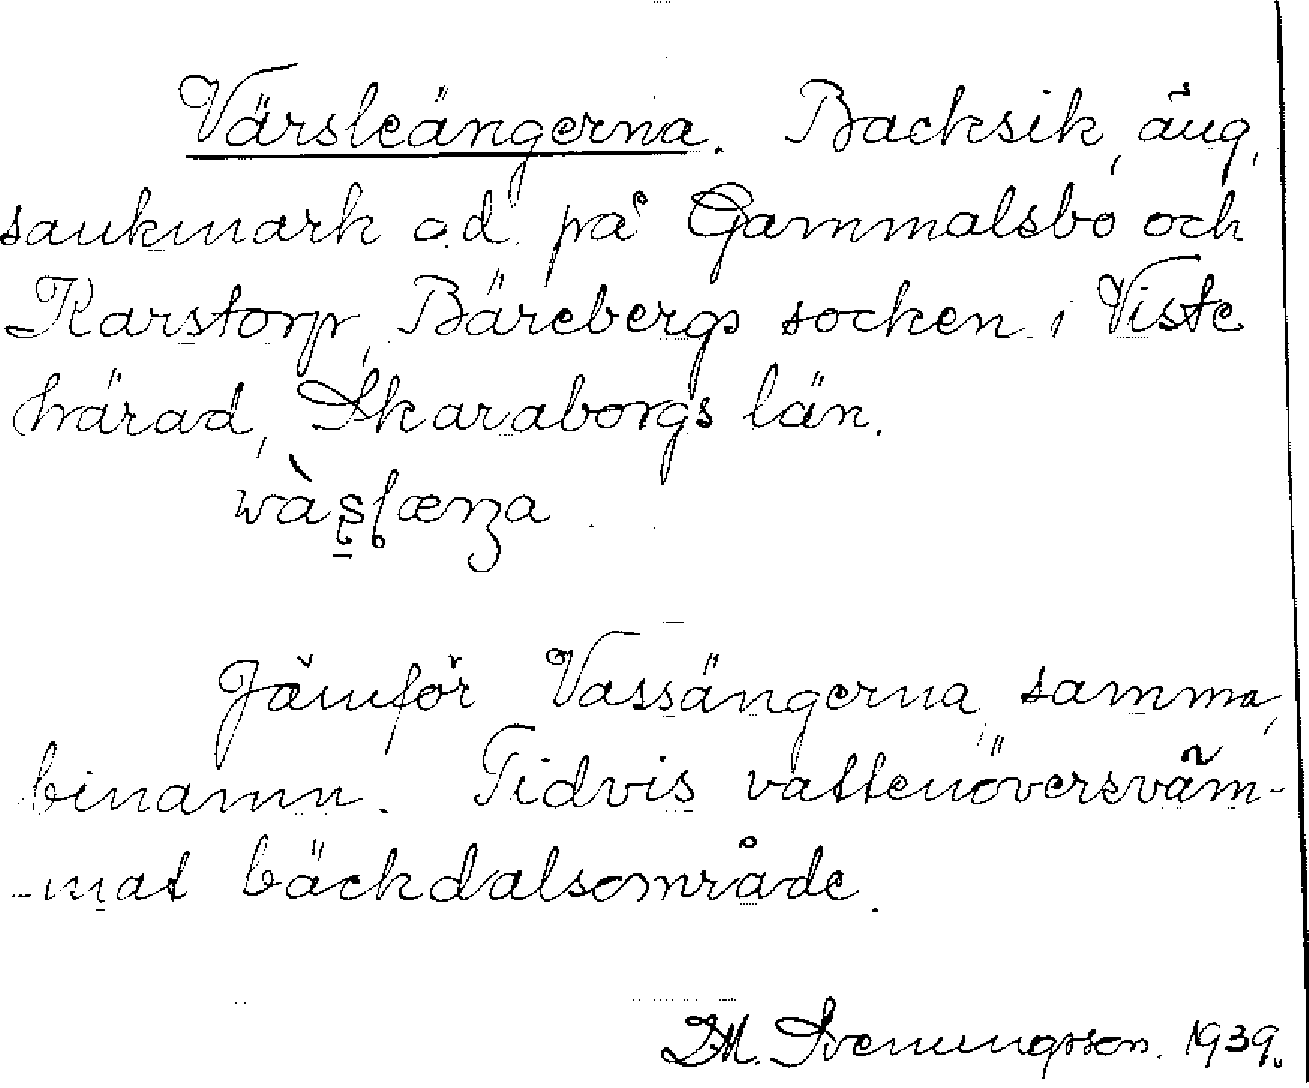 Värsleängerna. Backsik, äng,
sankmark o.d. på Gammalsbo och
Karstorp, Bärebergs socken i Viste
härad, Skaraborgs län.

Jämför Vassängerna, samma,
binamn. Tidvis vattenöversväm-
-mat bäckdalsområde.
D.M. Svenungsson. 1939.